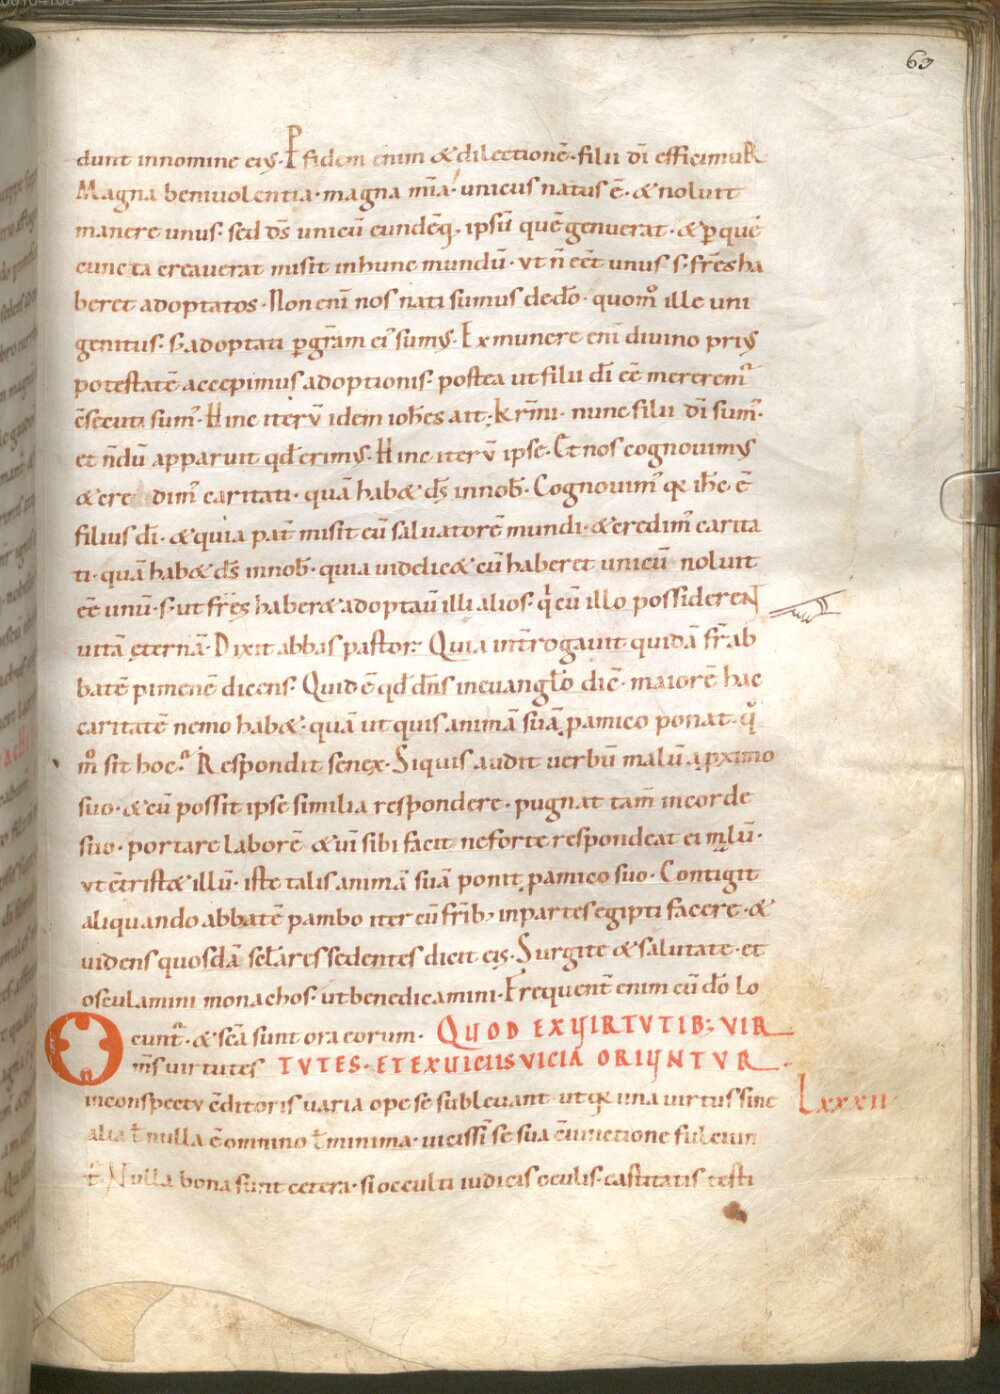 63
dunt innomine eiꝰ· P fidem enim & dilectionē· filii dī efficimuR
Magna benivolentia· magna mīa· unicus natus ē· & noluit
manere unus· sed dṡ unicū eundēq;· ipsū quē genuerat· & ꝑ quē
cuncta creaverat misit in hunc mundū· ut ñ eēt unus s; frēs ha
beret adoptatos· Non enī nos nati sumus de dō· quomᵒ ille uni
genitus· s; adoptati ꝑ grām ei᾿ sumꝰ· Ex munere enī divino priꝰ
potestatē accepimus adoptionis· postea ut filii dī eē mererem᾿
cōsecuti sum᾿· Hinc iterū idem ioħes ait· Krm̄i· nunc filii dī sum᾿·
et ñdū apparuit qđ erimꝰ· Hinc iterū ipse· Et nos cognovimꝰ
& credidim᾿ caritati· quā hab& dṡ in nob̄· Cognovim᾿ qꝛ iħc ē
filius dī· & quia pat̄ misit eū salvatorē mundi· & credidim᾿ carita
ti· quā hab& dṡ in nob̄· quia videlic& cū haberet unicū noluit
eē unū· s; ut frēs haber& adoptavit illi alios· q̄ cū illo possidereN
vitā ęternā· Dixit abbas pastor· Quia int̄rogavit quidā fr̄ ab
batē pimenē dicens· Quid ē qđ dn̄s in evanglō dic̄· maiorē hac
caritatē nemo hab&· quā ut quis animā suā ꝓ amico ponat· qͦ
mͦ sit hoc? Respondit senex· Si quis audit verbū malū a ꝓximo
suo· & cū possit ipse similia respondere· pugnat tam̄ in corde
suo· portare laborē & vī sibi facit ne forte respondeat ei malū·
ut cōtrist& illū· iste talis animā suā ponit ꝓ amico suo· Contigit
aliquando abbatē pambo iter cū frīb; in partes egipti facere· &
videns quosdā sclares sedentes dicit eis· Surgite & salutate· et
osculamini monachos· ut benedicamini· Frequent̄ enim cū dō lo
cunt᾿· & scā sunt ora eorum· QUOD EX VIRTVTIB; VIR
O m̄s virtutes TVTES· ET EX VICIIS VICIA ORIUNTVR·
in conspectu cōditoris varia ope se sublevant· ut qꝛ una virtus sine
Lxxxii·
alia ł nulla ē omnino ł minima· vicissī se sua cōiunctione fulciun
t̄· Nulla bona sunt cetera· si occulti iudicis oculis· castitatis testi